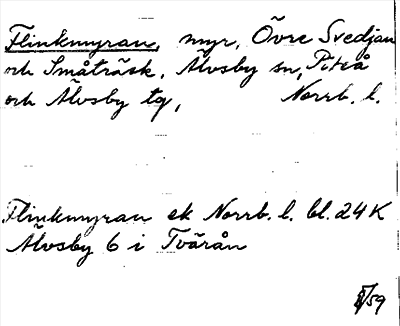 Flinkmyran, myr, Övre Svedjan
och Småträsk, Älvsby sn, Piteå
och Älvsby tg, Norrb. l.
Flinkmyran ek Norrb. l. bl. 24 K
Älvsby 6 i Tvärån
/59